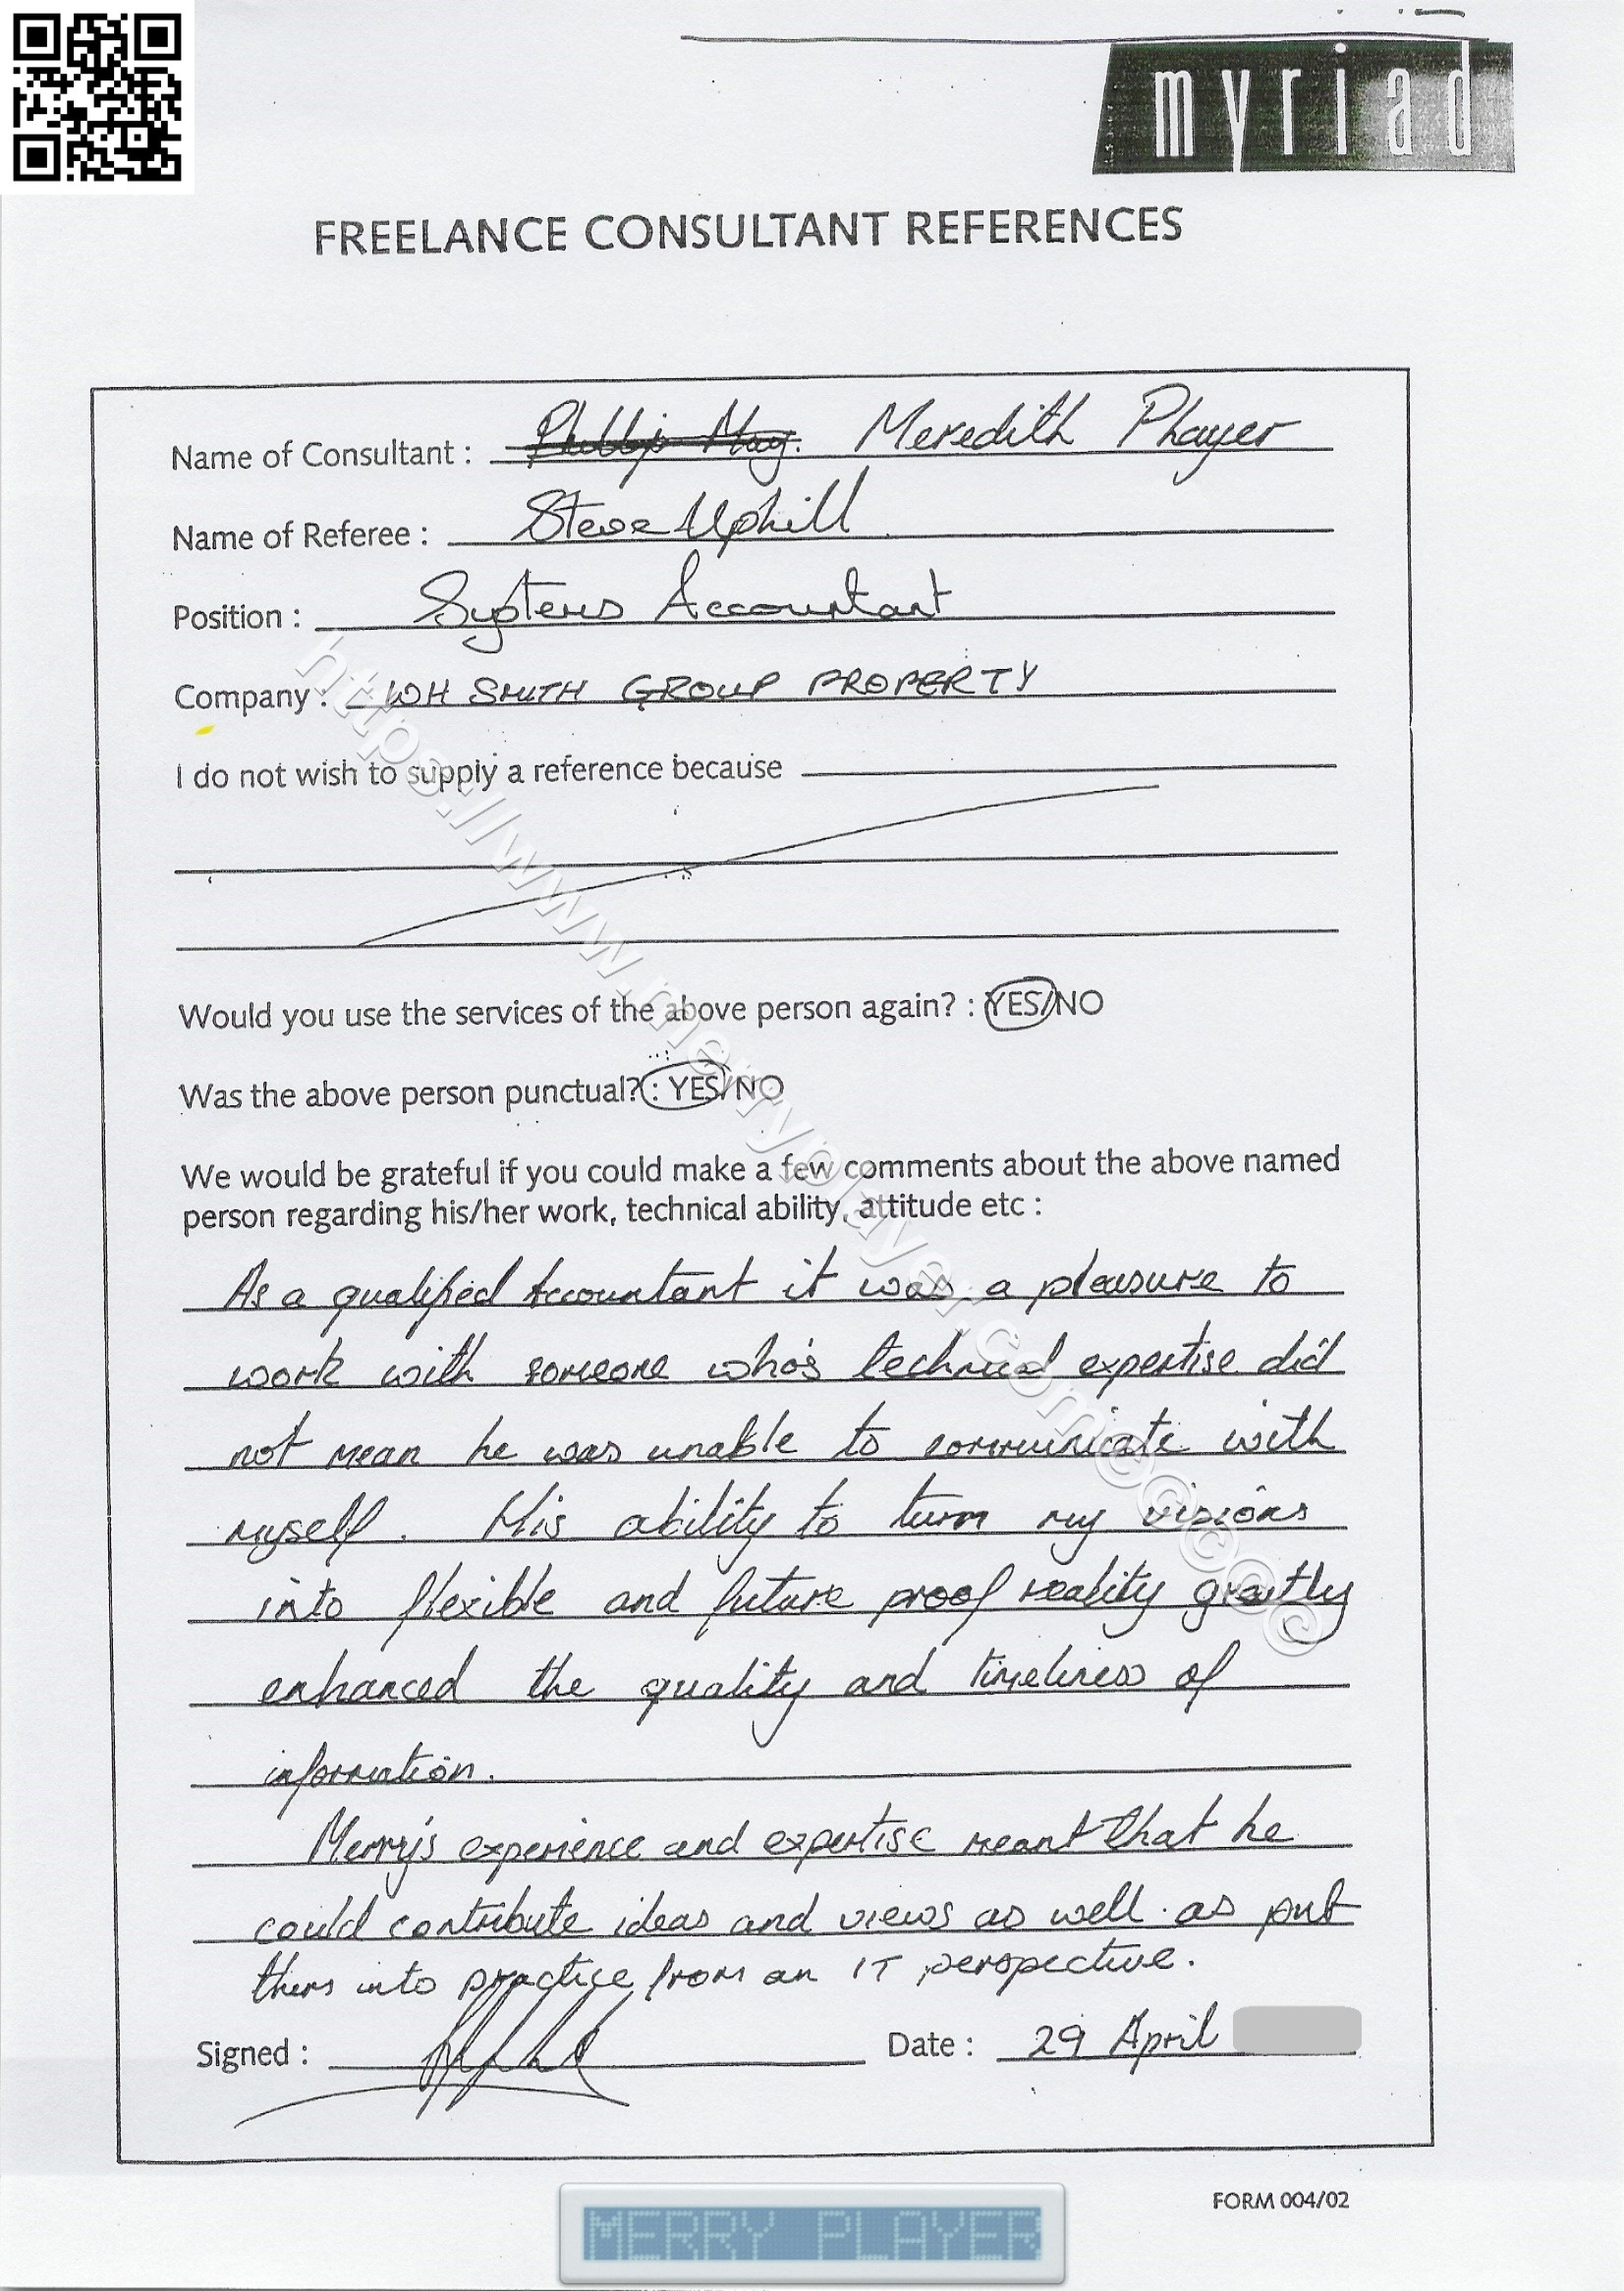 myriad
FREELANCE CONSULTANT REFERENCES
Name of Consultant : Meredith Phayer
Name of Referee : Steve Uphill
Position : Systems Accountant
Company : WH SMITH GROUP PROPERTY
I do not wish to supply a reference because
Would you use the services of the above person again? : YES/NO
Was the above person punctual? : YES/NO
We would be grateful if you could make a few comments about the above named
person regarding his/her work, technical ability, attitude etc :
As a qualified Accountant it was a pleasure to
work with someone who's technical expertise did
not mean he was unable to communicate with
myself. His ability to turn my visions
into flexible and future proof reality greatly
enhanced the quality and timeliness of
information.
Merry's experience and expertise meant that he
could contribute ideas and views as well as put
them into practice from an IT perspective.
Signed : Date : 29 April
FORM 004/02
MERRY PLAYER
https://www.merryplayer.com©©©©©©